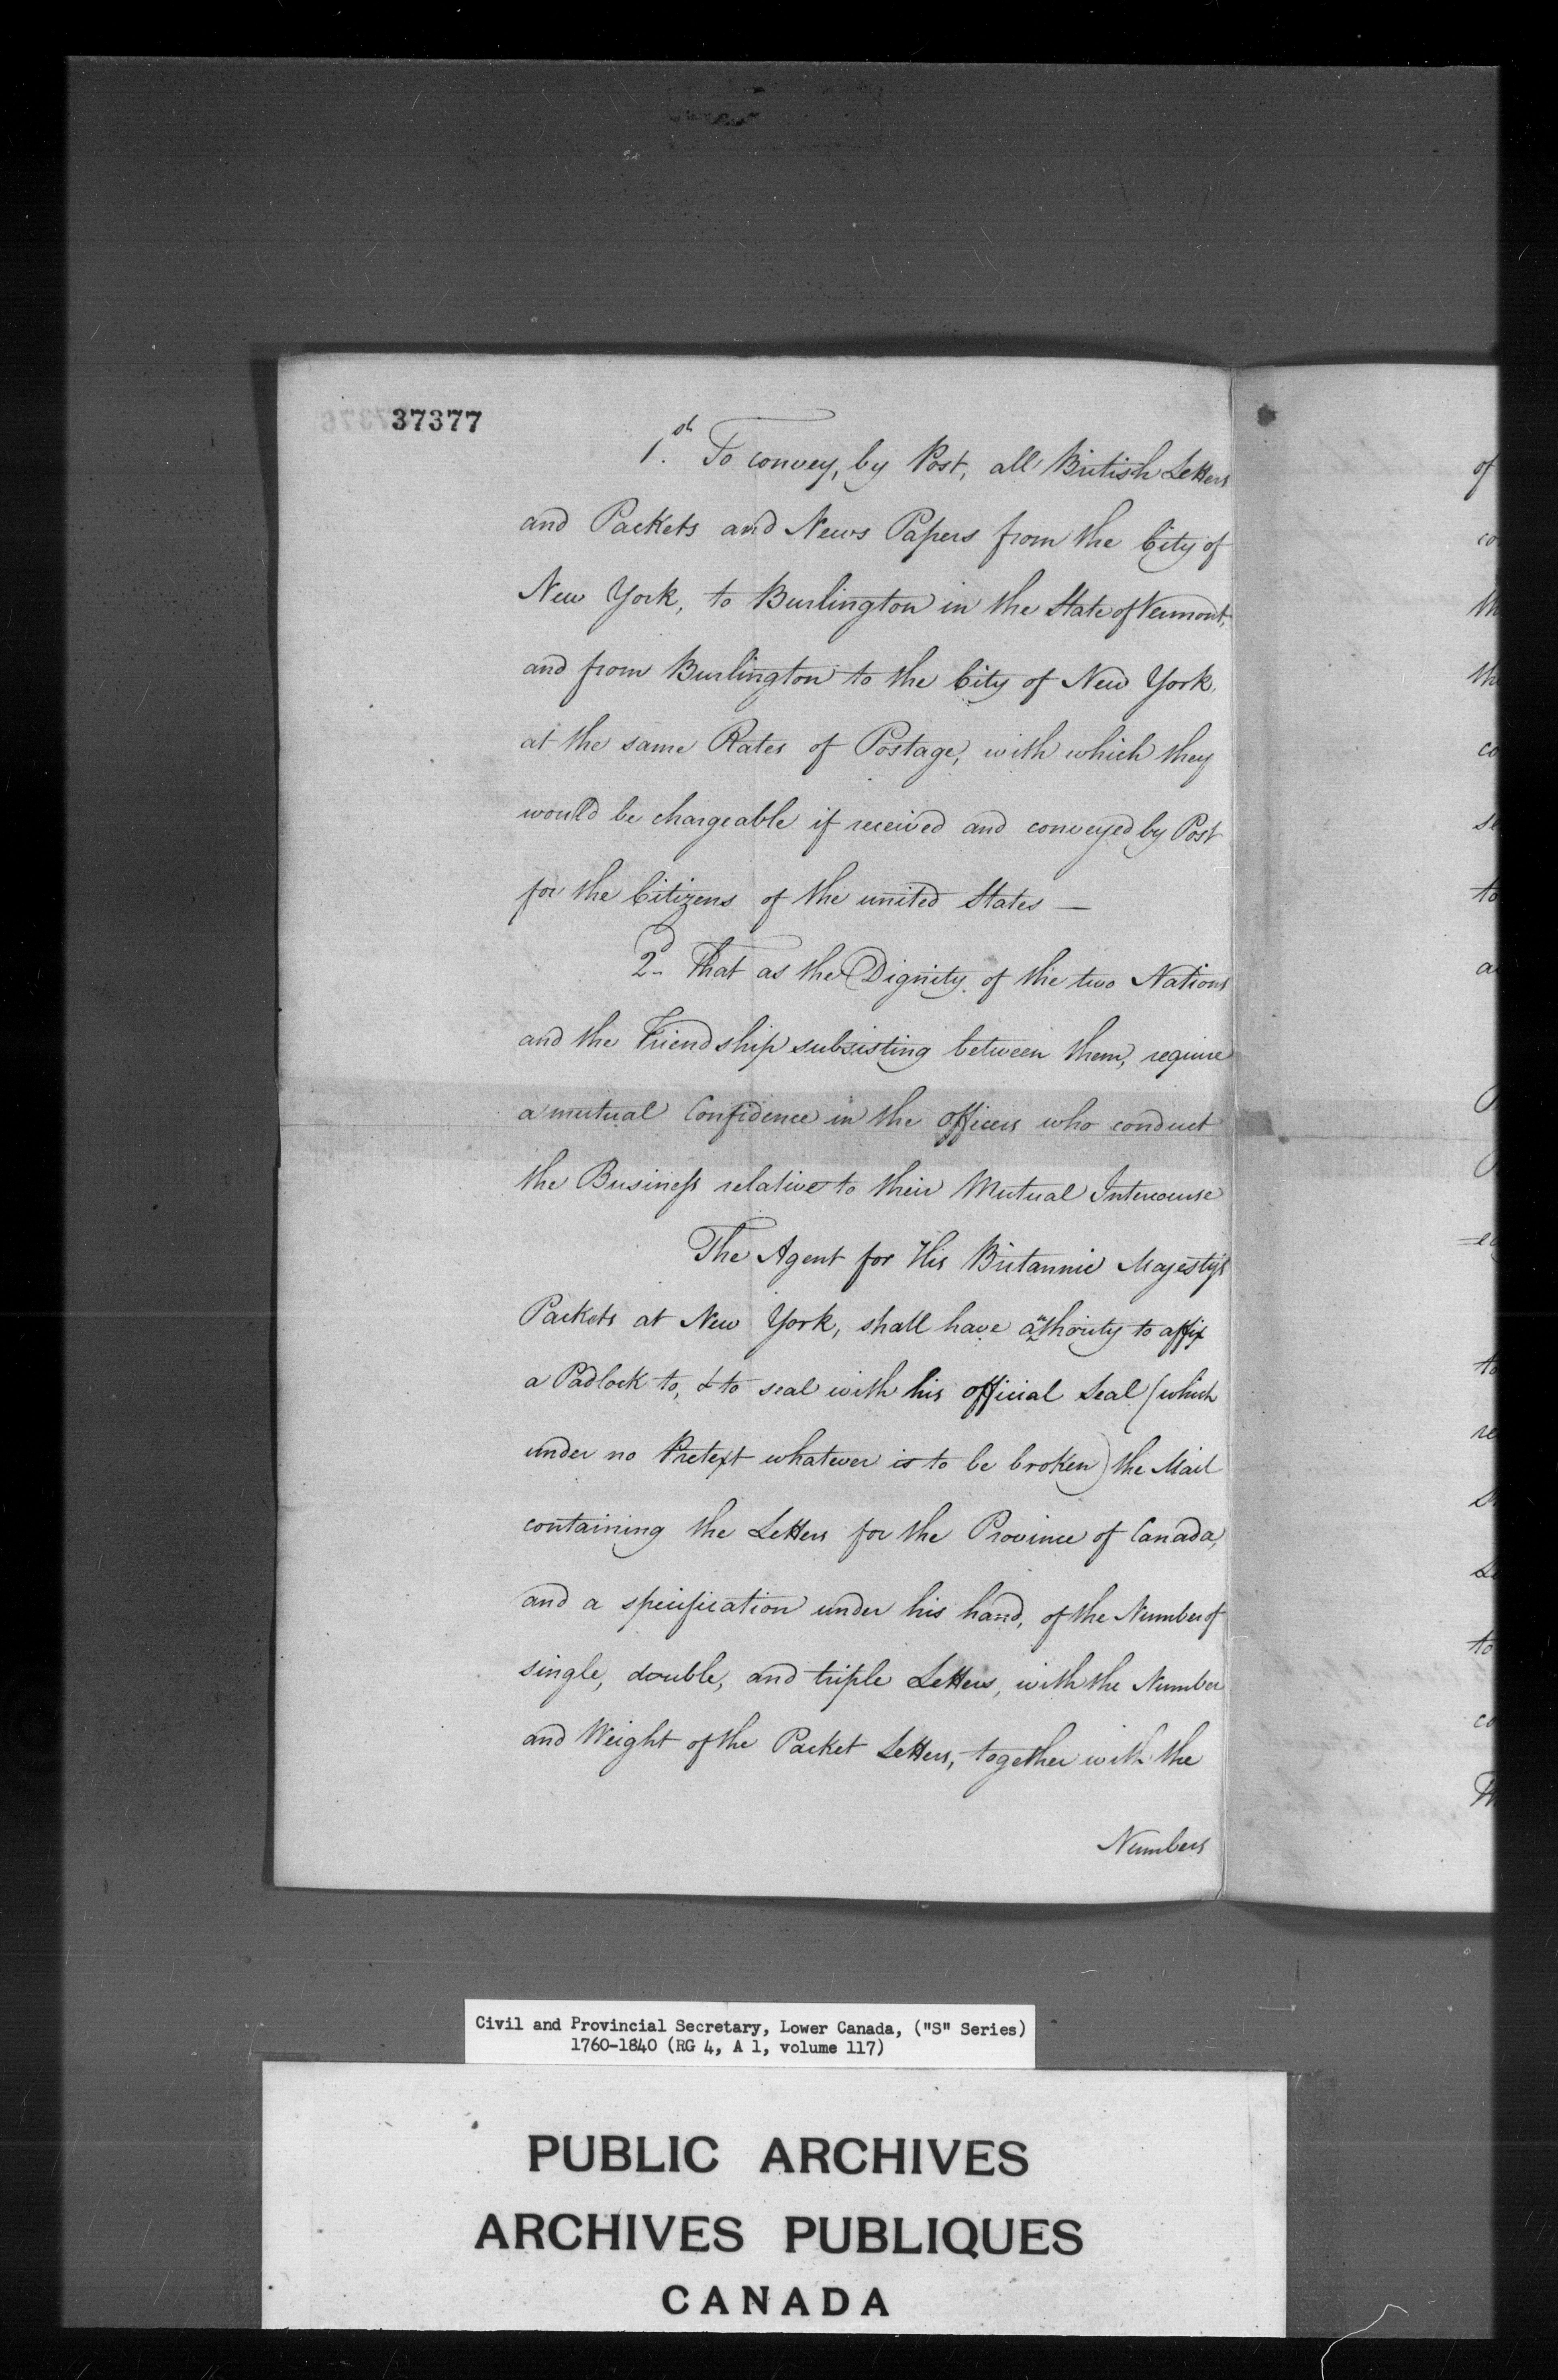 37377
1.st To convey, by Post, all British Letters
and Packets and News Papers from the City of
New York, to Burlington in the State of Vermont,
and from Burlington to the City of New York,
at the same Rates of Postage, with which they
would be chargeable if received and conveyed by Post
for the Citizens of the united States —
2d. That as the Dignity of the two Nations
and the Friendship subsisting between them, require
a mutual Confidence in the officers who conduct
the Business relative to their Mutual Intercourse
The Agent for His Britannic Majesty's
Packets at New York, shall have authority to affix
a Padlock to, & to seal with his official Seal (which
under no Pretext whatever is to be broken) the Mail
containing the Letters for the Province of Canada,
and a specification under his hand, of the Number of
single, double, and triple Letters, with the Number
and Weight of the Packet Letters, together with the
Numbers
of
co
th
the
co
se
to
a
to
re
to
co
Th
Civil and Provincial Secretary, Lower Canada, ("S" Series)
1760-1840 (RG 4, A 1, volume 117)
PUBLIC ARCHIVES
ARCHIVES PUBLIQUES
CANADA